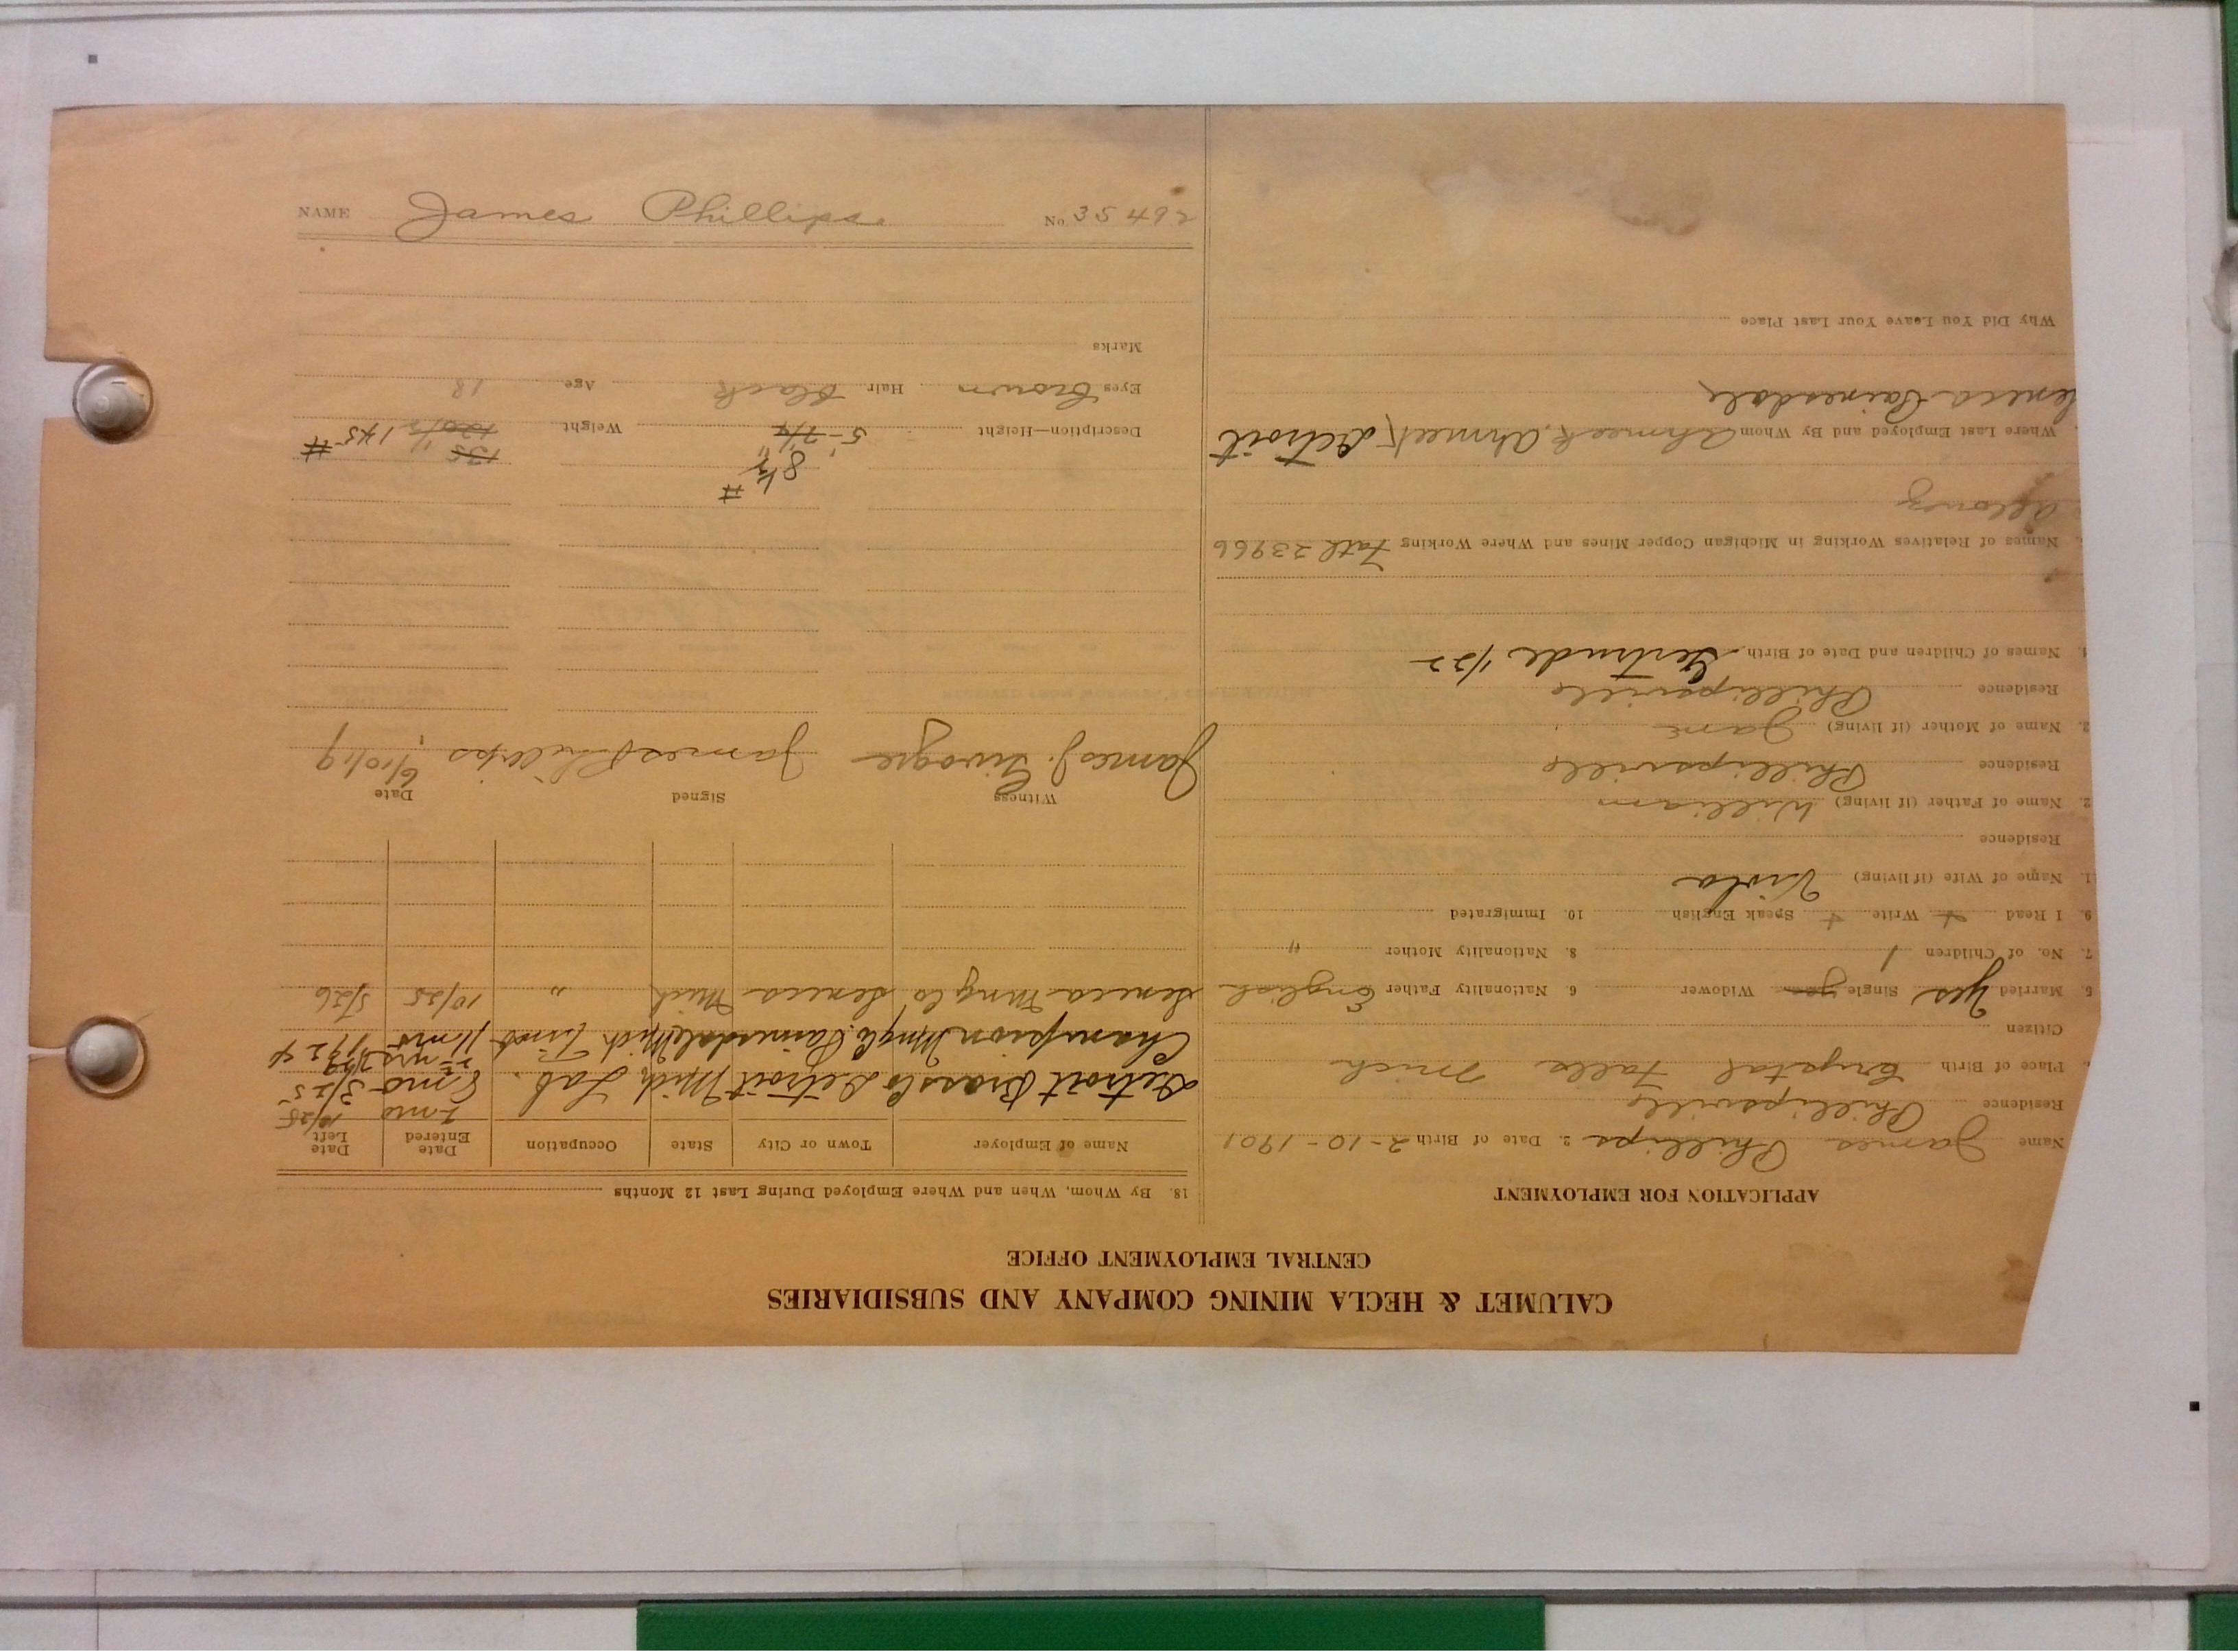 NAME James Phillips No. 35492
CALUMET & HECLA MINING COMPANY AND SUBSIDIARIES
CENTRAL EMPLOYMENT OFFICE
APPLICATION FOR EMPLOYMENT
Name James Phillips 2. Date of Birth 2-10-1901
Residence Phillipsville
Place of Birth Crystal Falls Mich
Citizen
5. Married Yes Single yes Widower 6. Nationality Father English
7. No. of Children 1 8. Nationality Mother "
9. I Read + Write + Speak English 10. Immigrated
1. Name of Wife (if living) Viola
Residence
2. Name of Father (if living) William
Residence Phillipsville
3. Name of Mother (if living) Jane
Residence Phillipsville
4. Names of Children and Date of Birth Gertrude 1/22
Names of Relatives Working in Michigan Copper Mines and Where Working Fath 23966
Allouez
Where Last Employed and By Whom Ahmeek, Ahmeek, Detroit
Seneca Painesdale
Why Did You Leave Your Last Place
18. By Whom, When and Where Employed During Last 12 Months
Name of Employer Town or City State Occupation Date Entered Date Left
Detroit Brass Co Detroit Mich Lab. 8 mo 3/25
Champion Mng Co. Painesdale Mich Tim 11 mo
Seneca Mng Co Seneca Mich " 10/25 5/26
Witness Signed Date
James J. James Phillips 6/10/19
8 1/2 # 135
Description—Height 5- 7 1/4" Weight 145 #
Eyes Brown Hair black Age 18
Marks